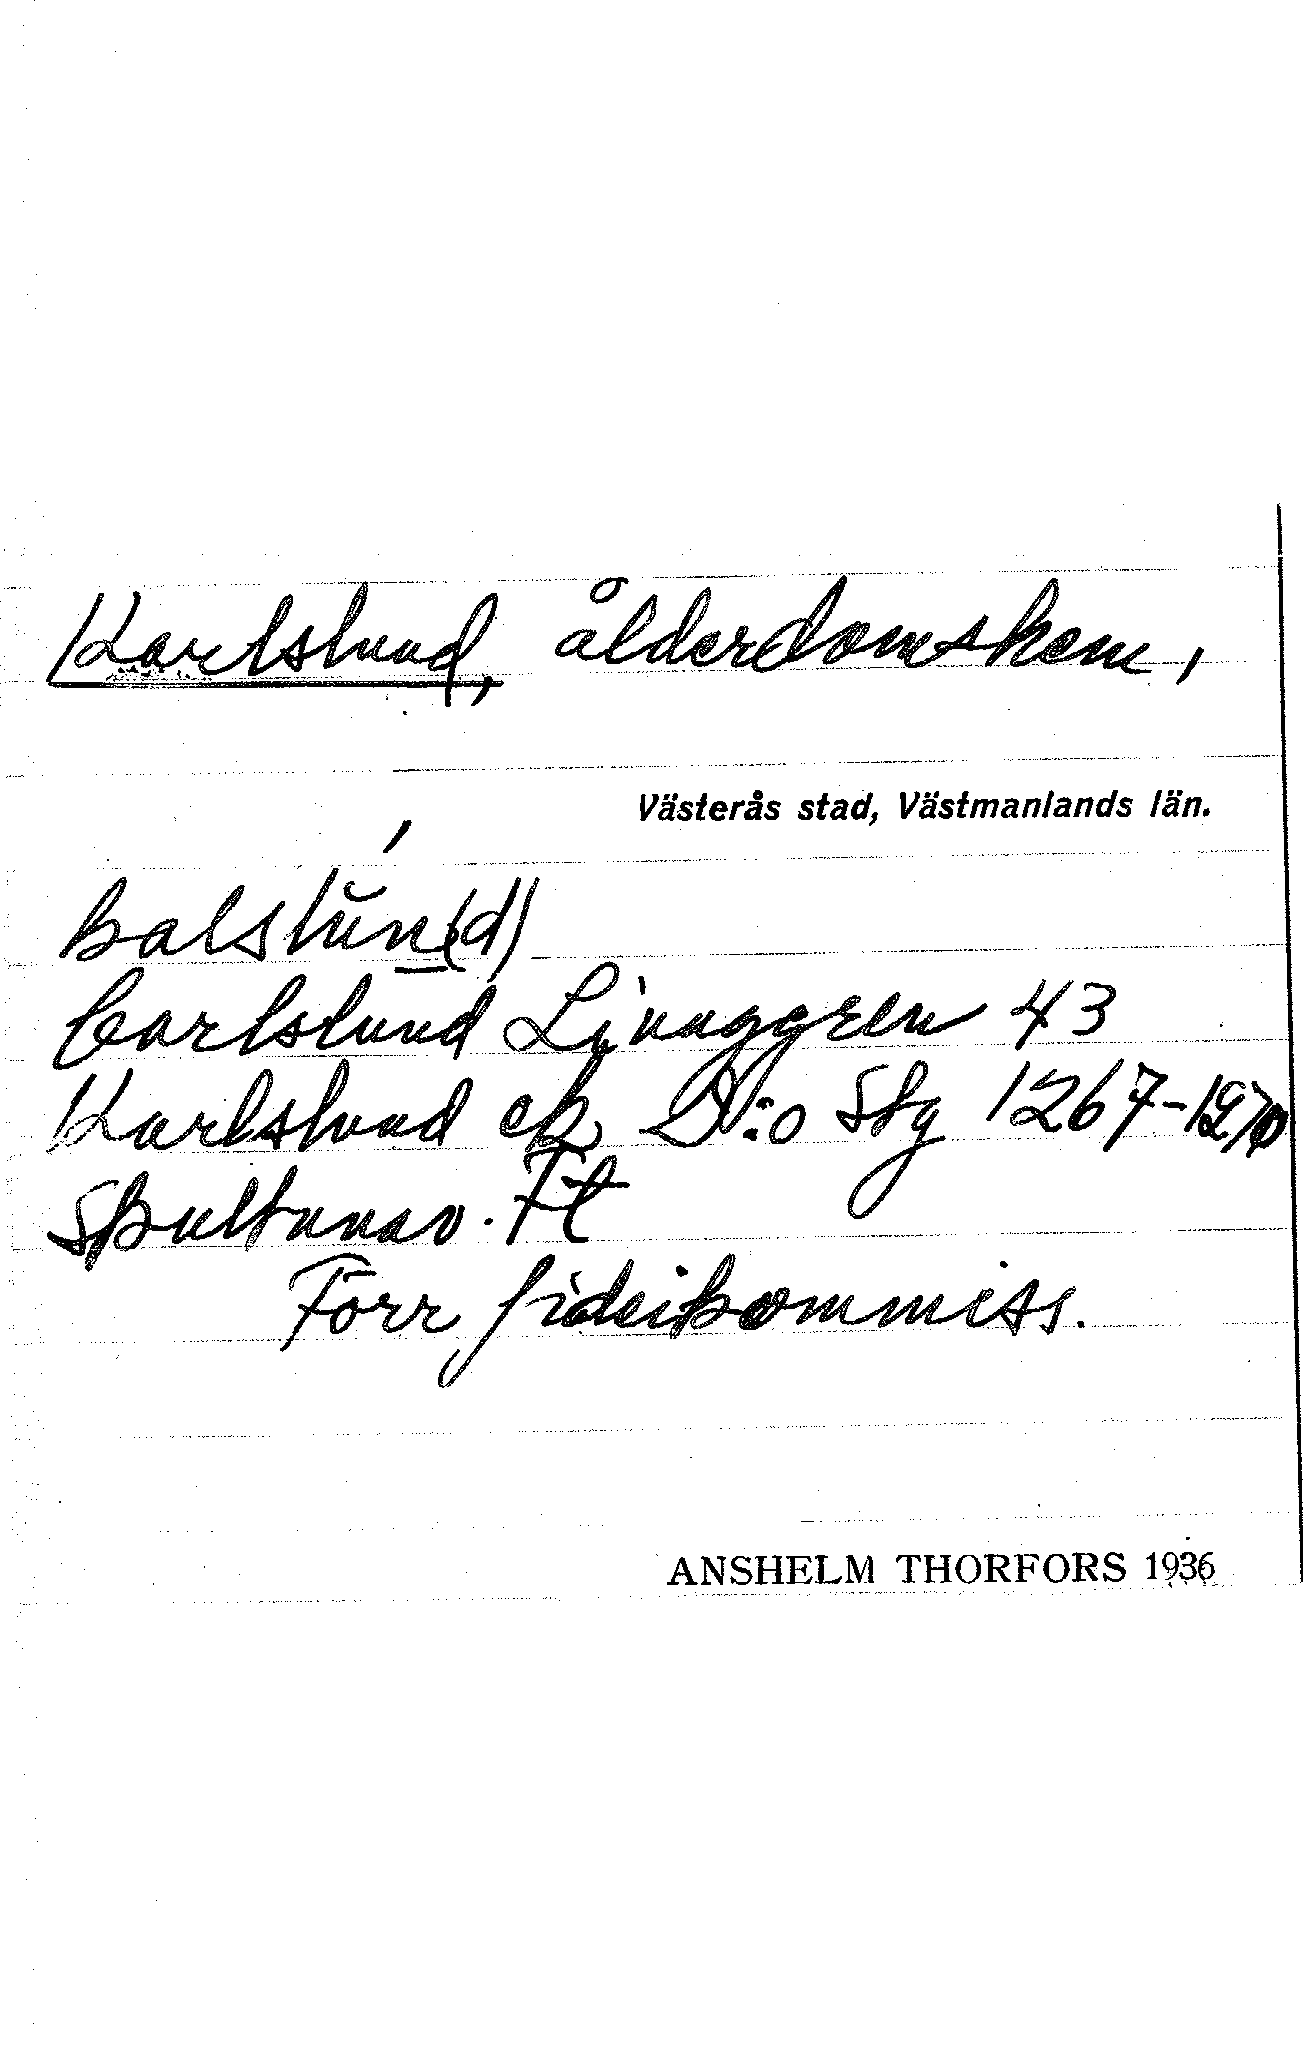 Karlslund, ålderdomshem,
Västerås stad, Västmanlands län.
kalslŭn(d)
Carlslund Linnggren 43
Karlslund ek D:o Stg 1267-1270
Skultunav. Ft
Förr fideikommiss.
ANSHELM THORFORS 1936